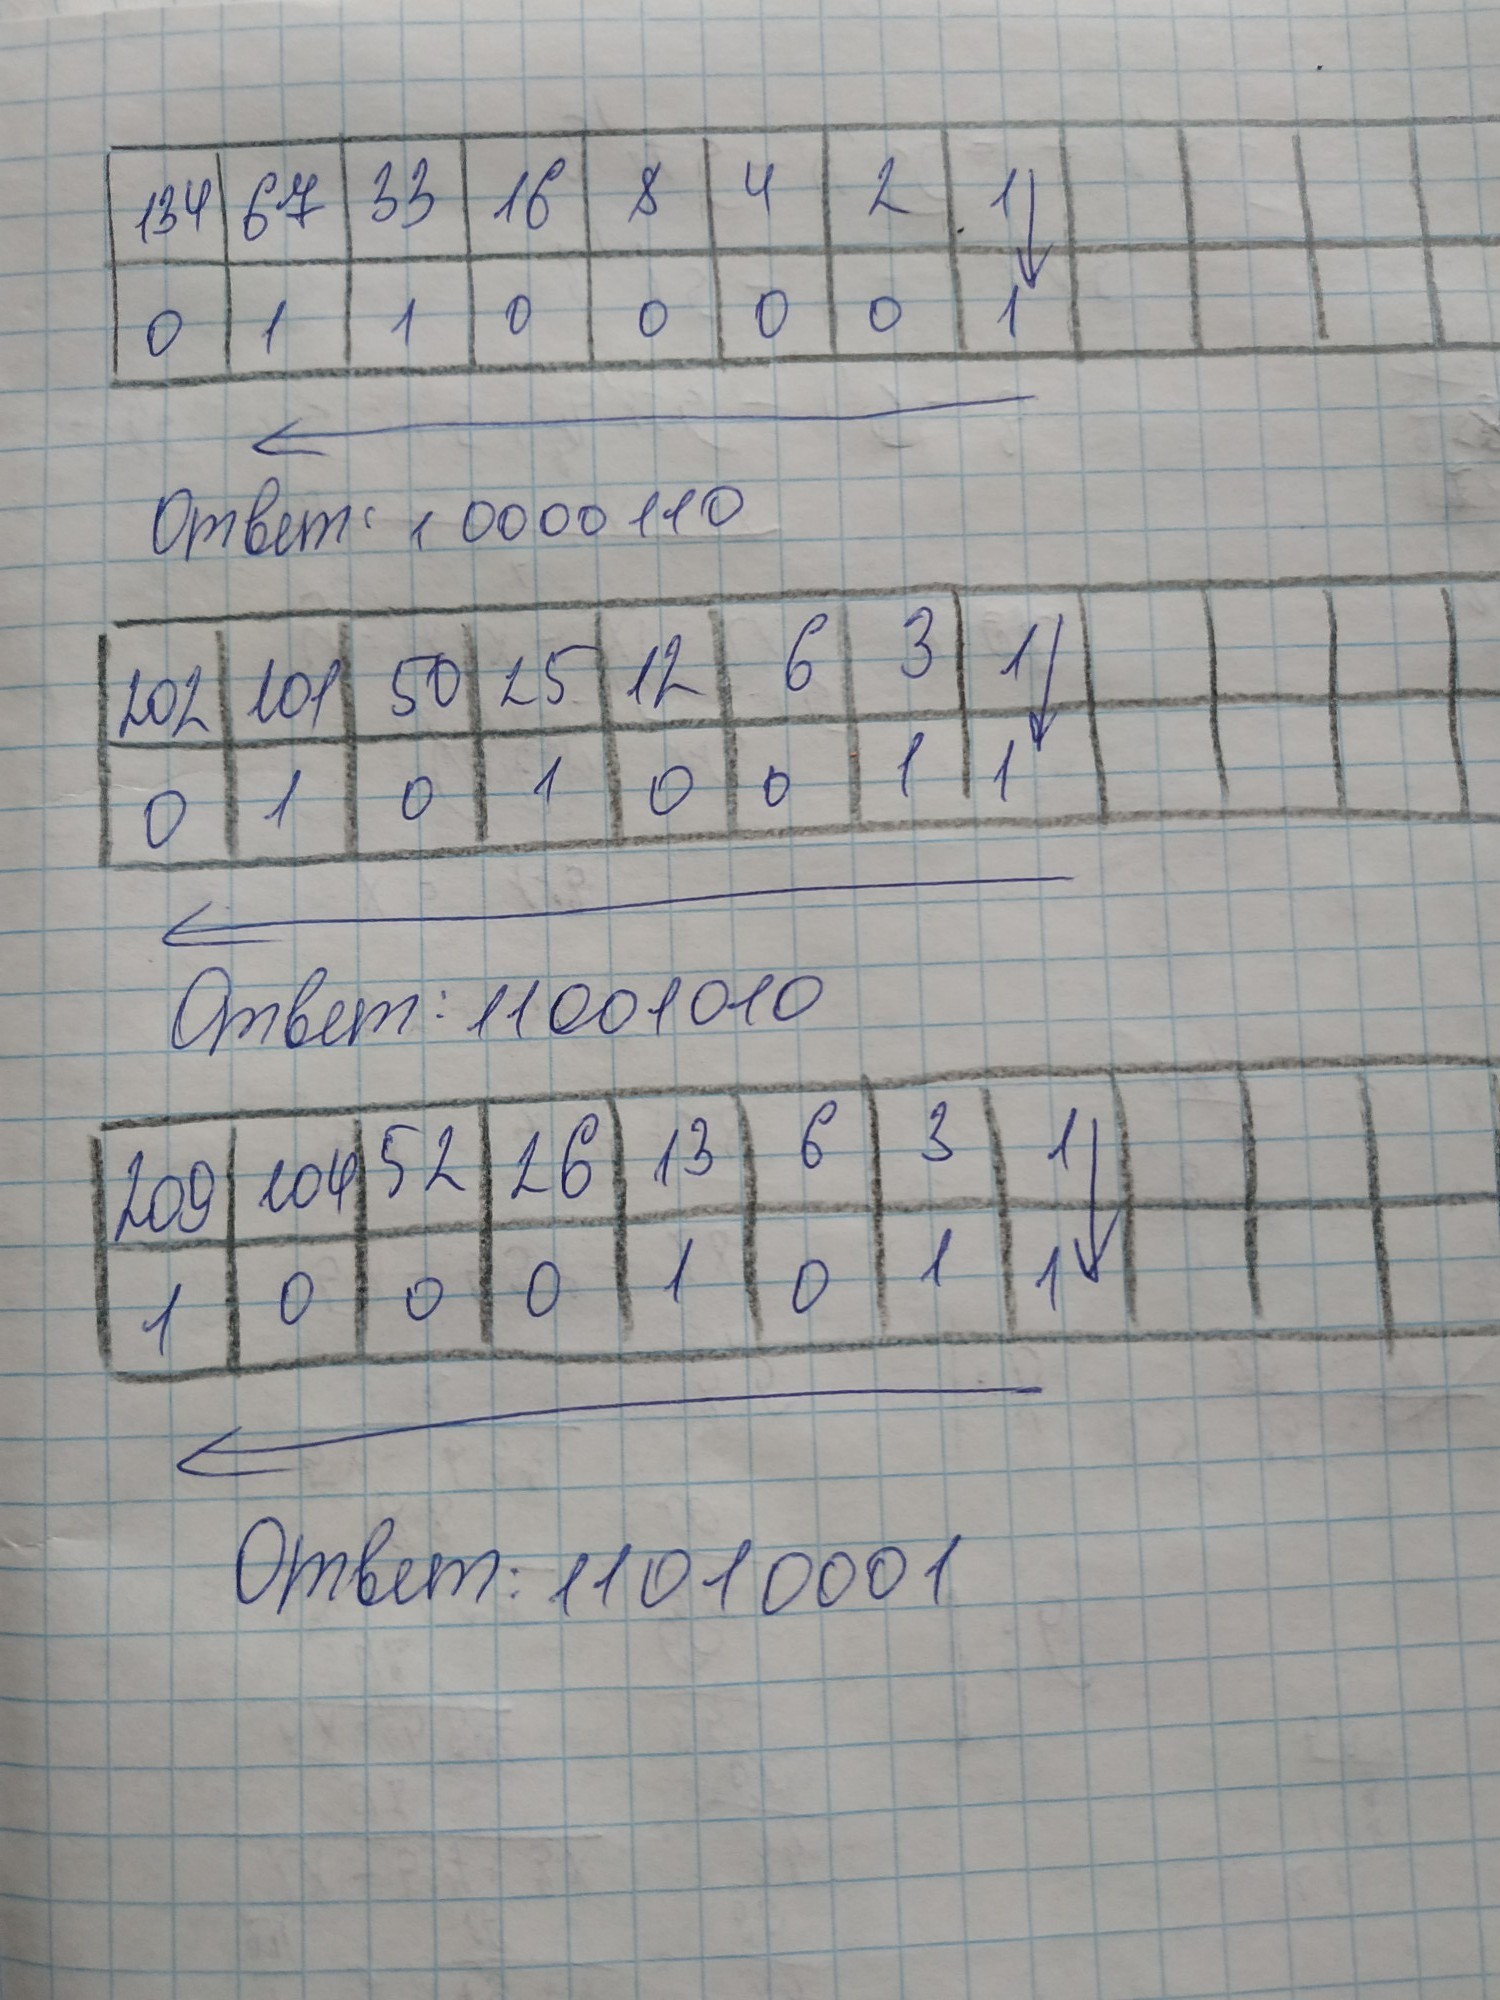 134 67 33 16 8 4 2 1
0 1 1 0 0 0 0 1
Ответ: 10000110
202 101 50 25 12 6 3 1
0 1 0 1 0 0 1 1
Ответ: 11001010
209 104 52 26 13 6 3 1
1 0 0 0 1 0 1 1
Ответ: 11010001